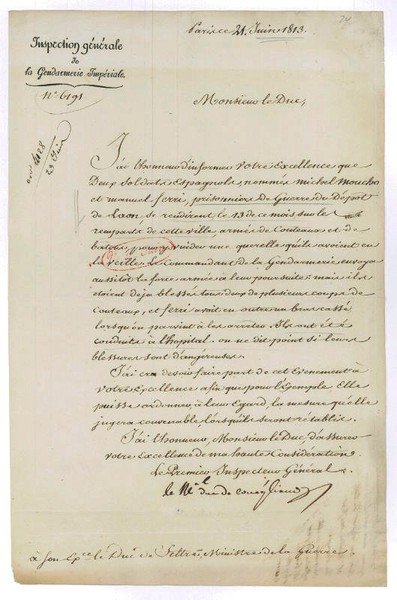 24
Paris ce 21 Juin 1813.
Inspection générale
de
la Gendarmerie Impériale.
N.º 6191
Monsieur le Duc,
J'ai l'honneur d'informer Votre Excellence que
Deux Soldats Espagnols, nommés michel
et manuel ferri, prisonniers de Guerre du Dépôt
de Laon, se rendirent le 13 de ce mois sur les
remparts de cette ville, armés de Couteaux et de
batons, pour y vider une querelle qu'ils avaient eu
la veille. Le Commandant de la Gendarmerie envoya
aussitôt la force armée à leur poursuite; mais ils
étoient déja blessés tous deux de plusieurs coups de
Couteaux, et ferri avait en outre un bras cassé
lorsqu'on parvint à les arrêter. Ils ont été
conduits à l'hopital. on ne dit point si leurs
blessures sont dangereuses.
J'ai cru devoir faire part de cet évenement à
Votre Excellence afin que pour l'exemple Elle
puisse ordonner, à leur Egard, la mesure qu'elle
jugera convenable lorsqu'ils seront rétablis.
J'ai l'honneur, Monsieur le Duc, d'assurer
votre Excellence de ma haute Considération.
Le Premier Inspecteur Général,
le M.al duc de
a Son Ex.ce le Duc de Feltre, Ministre de la Guerre.